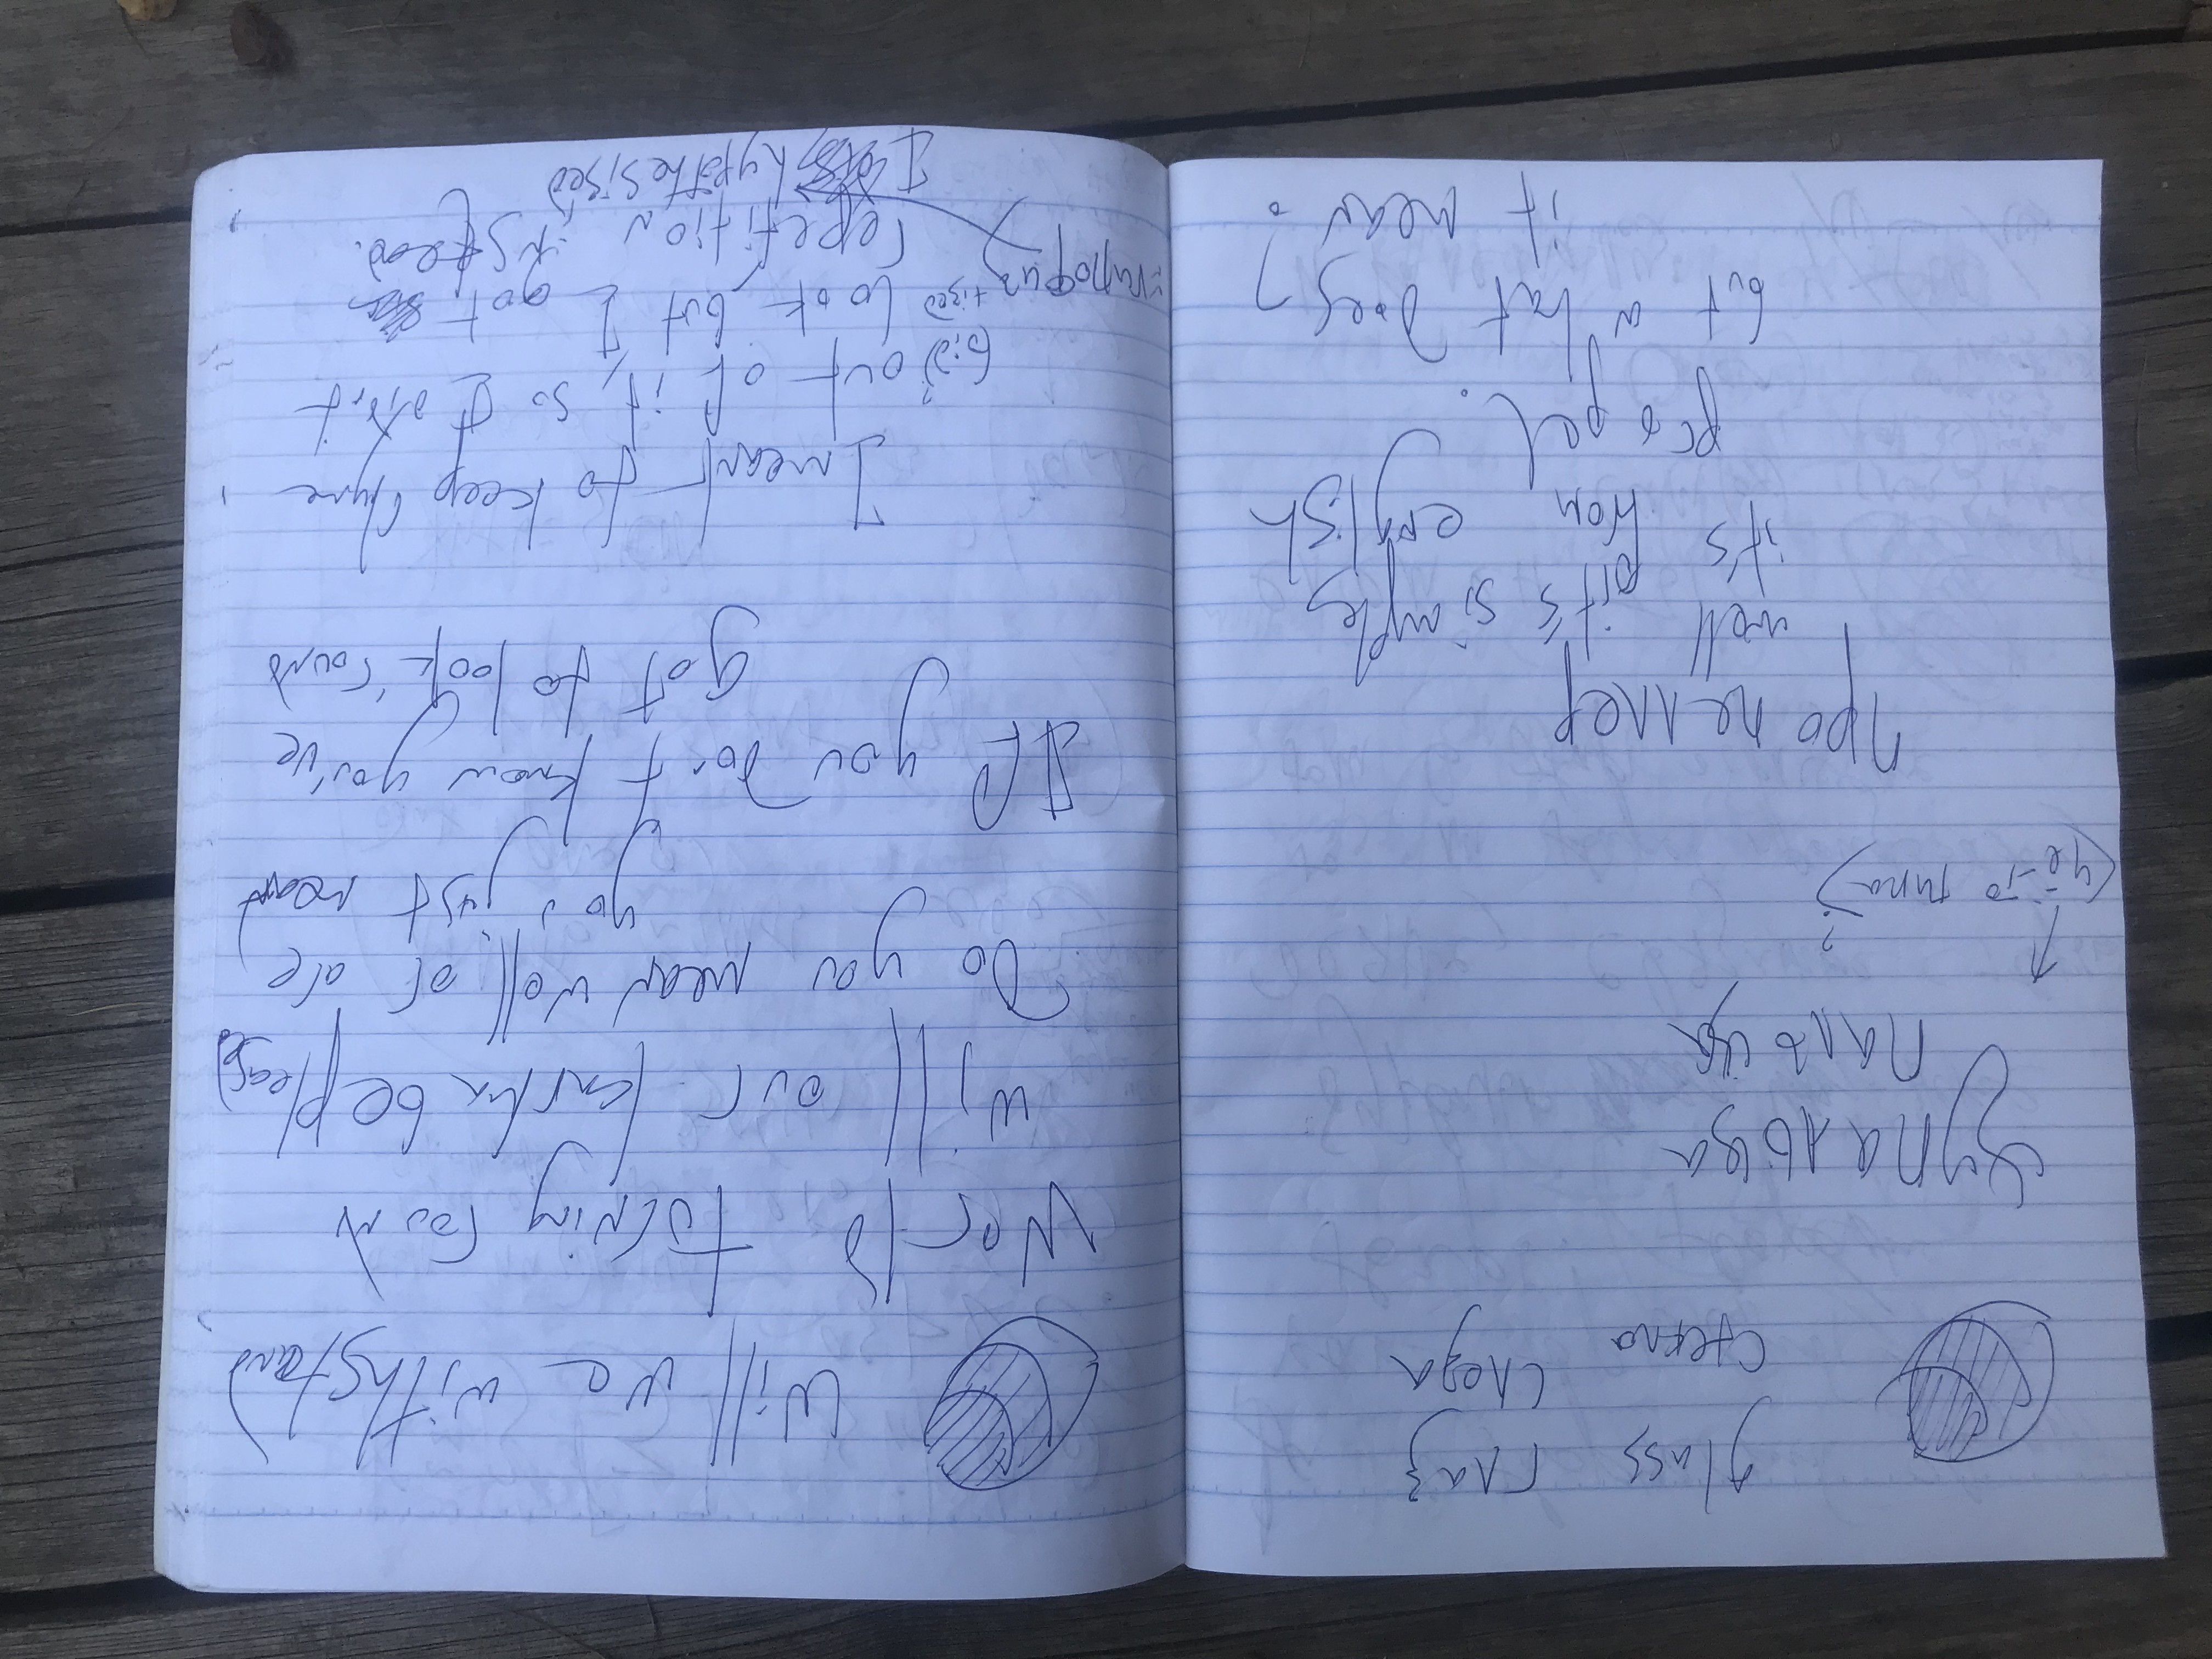 glass глаз
стекла слеза
щупальца
пальца
(чё-то типа)?
пропеллер
well it's simple,
it's from english
propel.
but what does
it mean?
Will we withstand
World turning round
will our karma be pleased
Do you mean well or are
you just mean
If you don't know you've
got to look 'round
I meant to keep rhyme
out of it, so I didn't
(did)?
look, but I got
=гипофиз tised
repetition instead.
I hypothesised